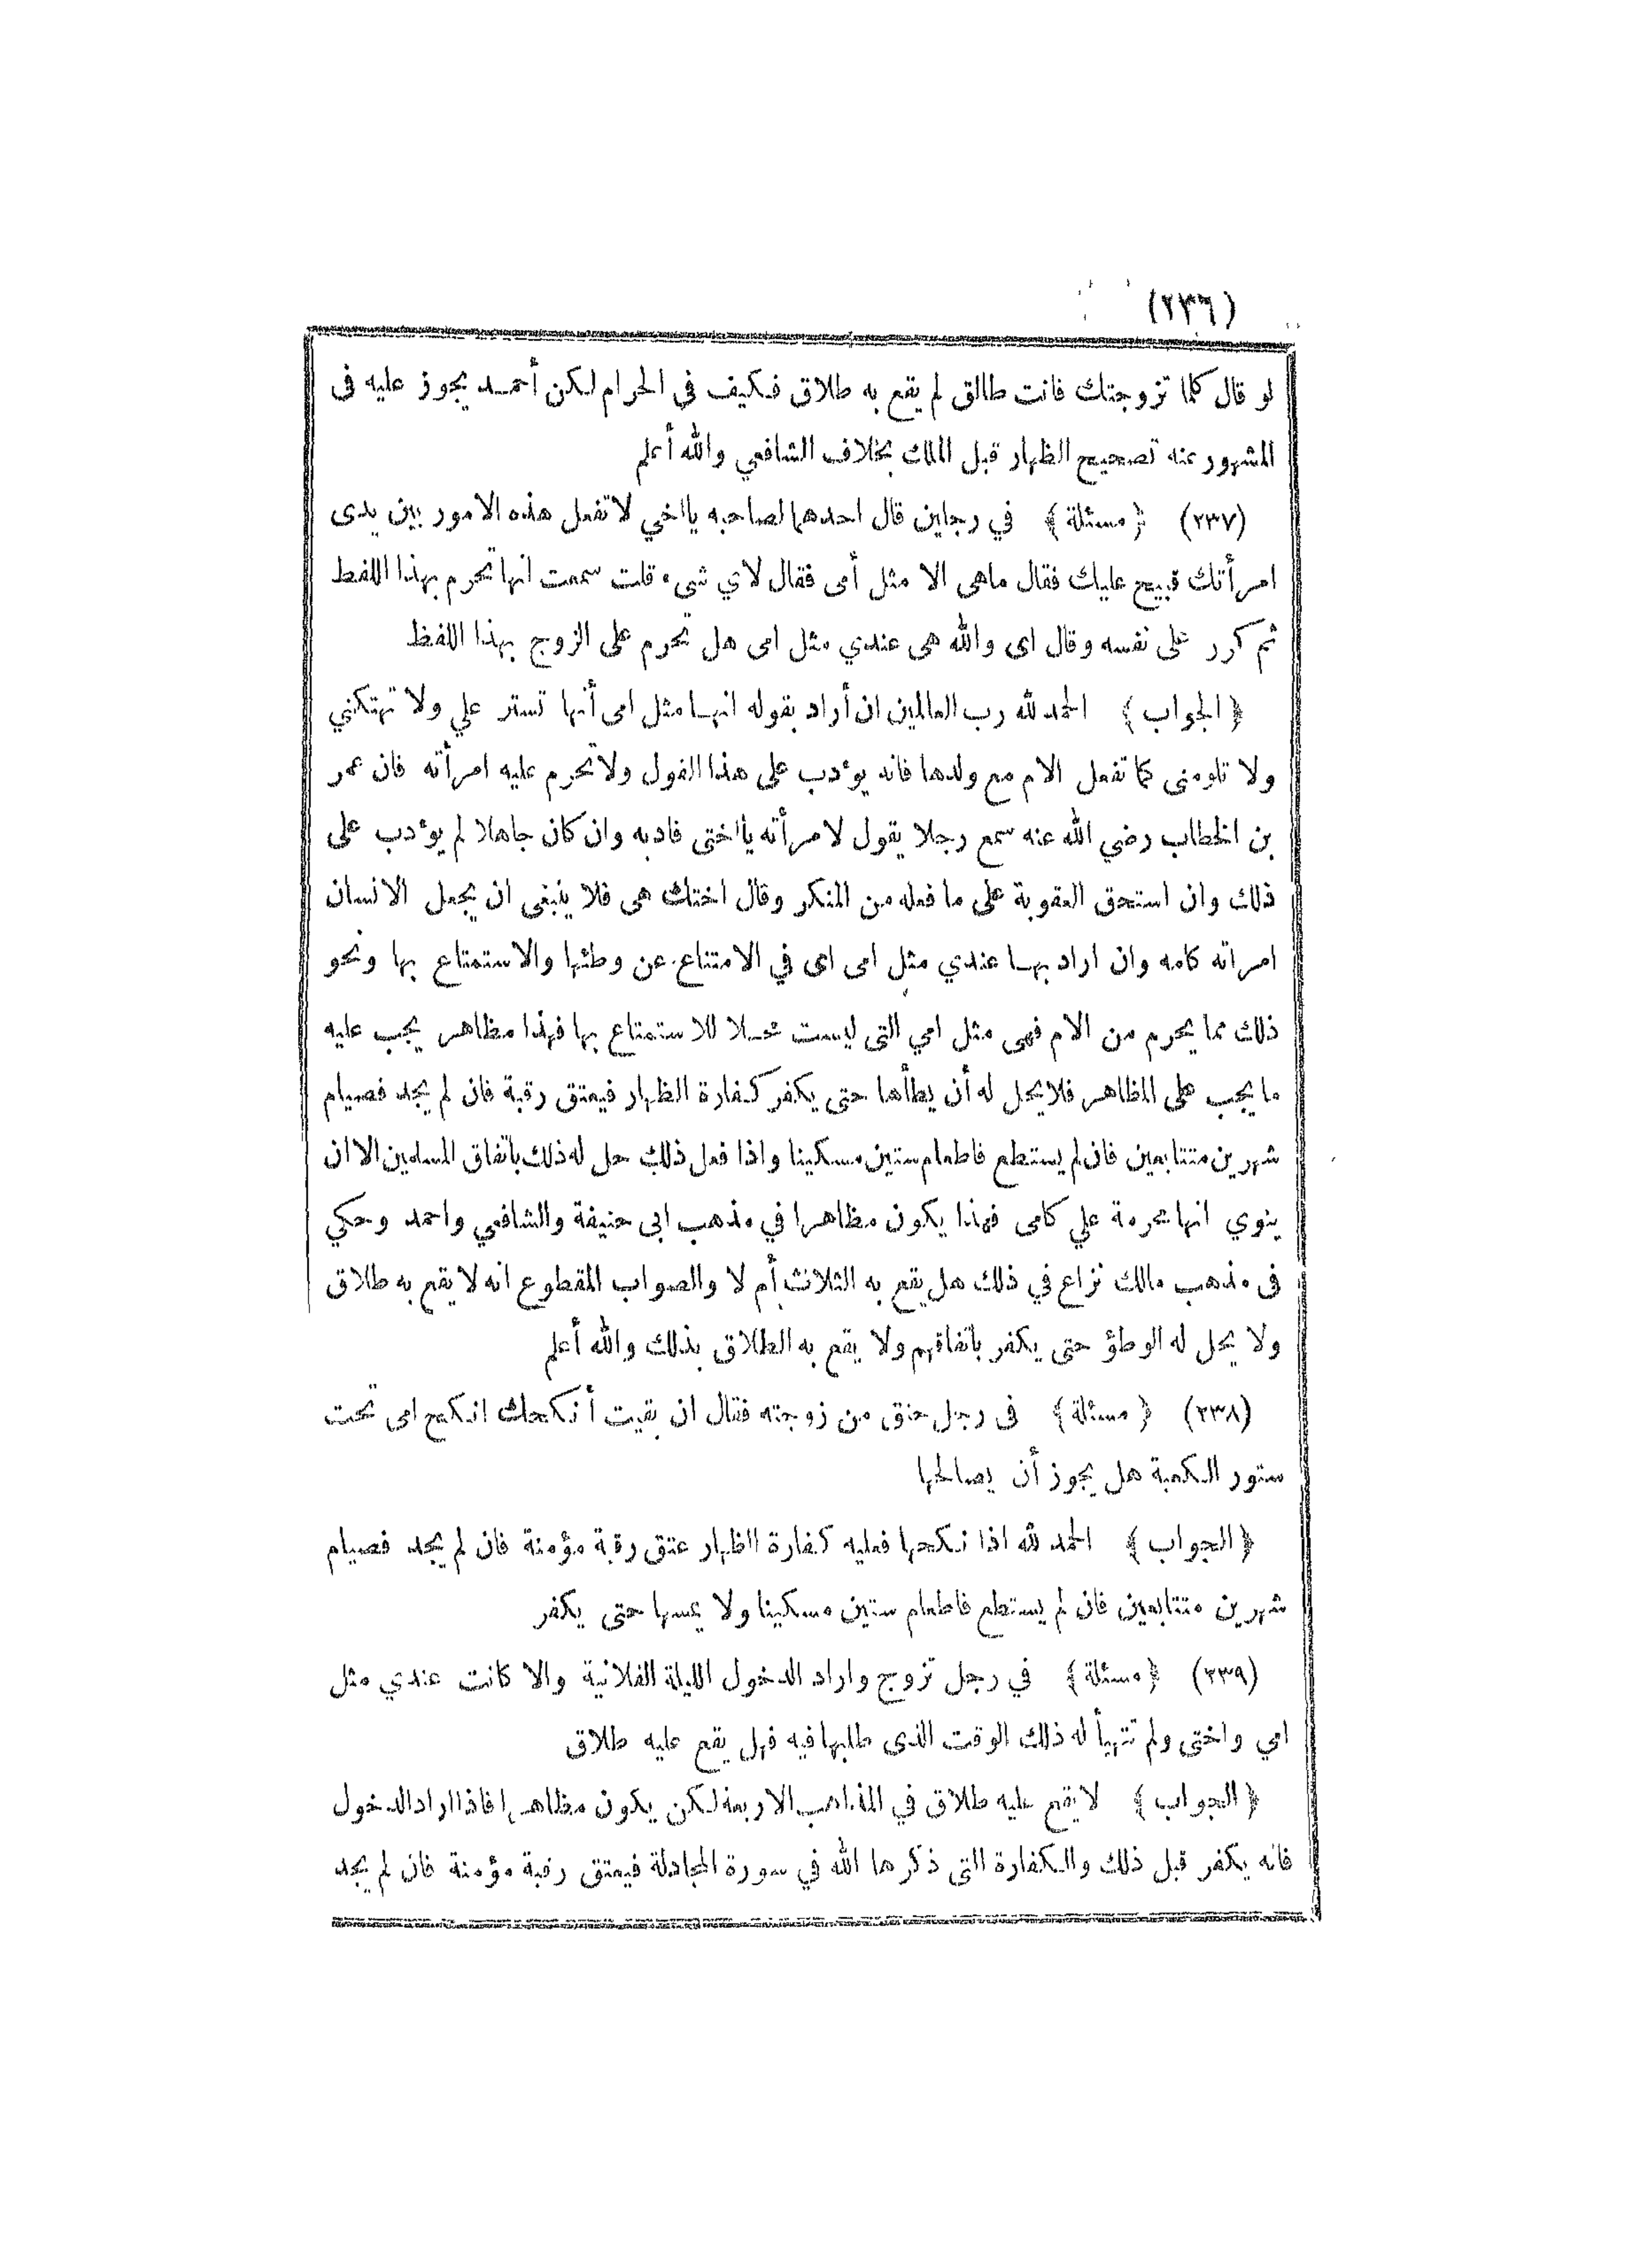 (٢٣٦)
لو قال كلما تزوجتك فانت طالق لم يقع به طلاق فكيف فى الحرام لكن أحمد يجوز عليه فى
المشهور عنه تصحيح الظهار قبل الملك بخلاف الشافعي والله أعلم
(٢٣٧) ﴿ مسئلة ﴾ في رجلين قال احدهما لصاحبه يااخي لا تفعل هذه الامور بين يدى
امرأتك قبيح عليك فقال ماهى الا مثل أمى فقال لاي شىء قلت سمعت انها تحرم بهذا اللفظ
ثم كرر على نفسه وقال اى والله هى عندي مثل امى هل تحرم على الزوج بهذا اللفظ
﴿ الجواب ﴾ الحمد لله رب العالمين ان أراد بقوله انها مثل امى أنها تستر علي ولا تهتكني
ولا تلومنى كما تفعل الام مع ولدها فانه يؤدب على هذا القول ولا تحرم عليه امرأته فان عمر
بن الخطاب رضي الله عنه سمع رجلا يقول لامرأته يااختى فادبه وان كان جاهلا لم يؤدب على
ذلك وان استحق العقوبة على ما فعله من المنكر وقال اختك هى فلا ينبغى ان يجعل الانسان
امراته كامه وان اراد بها عندي مثل امى اى في الامتناع عن وطئها والاستمتاع بها ونحو
ذلك مما يحرم من الام فهى مثل امي التى ليست محلا للاستمتاع بها فهذا مظاهر يجب عليه
ما يجب على المظاهر فلا يحل له أن يطأها حتى يكفر كفارة الظهار فيعتق رقبة فان لم يجد فصيام
شهرين متتابعين فان لم يستطع فاطعام ستين مسكينا واذا فعل ذلك حل له ذلك باتفاق المسلمين الا ان
ينوي انها محرمة علي كامى فهذا يكون مظاهرا في مذهب ابى حنيفة والشافعي واحمد وحكي
فى مذهب مالك نزاع في ذلك هل يقع به الثلاث أم لا والصواب المقطوع انه لا يقع به طلاق
ولا يحل له الوطؤ حتى يكفر باتفاقهم ولا يقع به الطلاق بذلك والله أعلم
(٢٣٨) ﴿ مسئلة ﴾ فى رجل حنق من زوجته فقال ان بقيت أنكحك انكح امى تحت
ستور الكعبة هل يجوز أن يصالحها
﴿ الجواب ﴾ الحمد لله اذا نكحها فعليه كفارة الظهار عتق رقبة مؤمنة فان لم يجد فصيام
شهرين متتابعين فان لم يستطع فاطعام ستين مسكينا ولا يمسها حتى يكفر
(٢٣٩) ﴿ مسئلة ﴾ في رجل تزوج واراد الدخول الليلة الفلانية والا كانت عندي مثل
امي واختى ولم تتهيأ له ذلك الوقت الذى طلبها فيه فهل يقع عليه طلاق
﴿ الجواب ﴾ لا يقع عليه طلاق في المذاهب الاربعة لكن يكون مظاهرا فاذا اراد الدخول
فانه يكفر قبل ذلك والكفارة التى ذكرها الله في سورة المجادلة فيعتق رقبة مؤمنة فان لم يجد